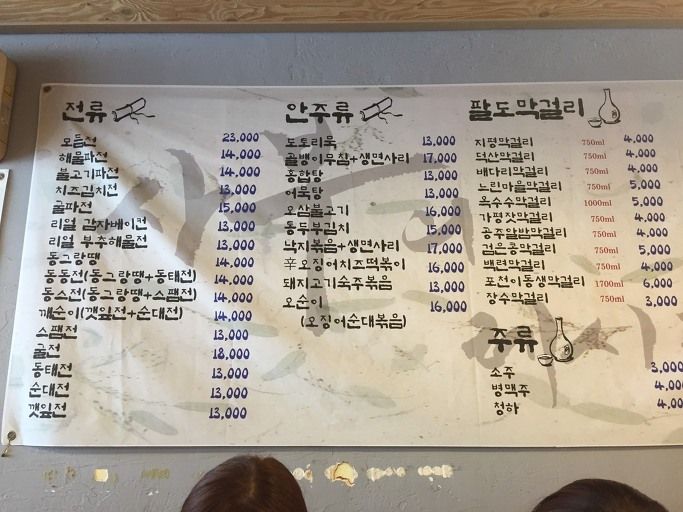 전류
모듬전 23,000
해물파전 14,000
불고기파전 14,000
치즈김치전 13,000
굴파전 15,000
리얼 감자베이컨 13,000
리얼 부추해물전 13,000
동그랑땡 13,000
동동전(동그랑땡+동태전) 14,000
동스전(동그랑땡+스팸전) 14,000
깨순이(깻잎전+순대전) 14,000
스팸전 13,000
굴전 18,000
동태전 13,000
순대전 13,000
깻잎전 13,000
안주류
도토리묵 13,000
골뱅이무침+생면사리 17,000
홍합탕 13,000
어묵탕 13,000
오삼불고기 16,000
통두부김치 15,000
낙지볶음+생면사리 17,000
辛오징어치즈떡볶이 16,000
돼지고기숙주볶음 13,000
오순이 16,000
(오징어순대볶음)
팔도막걸리
지평막걸리 750ml 4,000
덕산막걸리 750ml 4,000
배다리막걸리 750ml 4,000
느린마을막걸리 750ml 5,000
옥수수막걸리 1000ml 5,000
가평잣막걸리 750ml 4,000
공주알밤막걸리 750ml 4,000
검은콩막걸리 750ml 5,000
백련막걸리 750ml 4,000
포천이동생막걸리 1700ml 6,000
장수막걸리 750ml 3,000
주류
소주 3,000
병맥주 4,00
청하 4,00